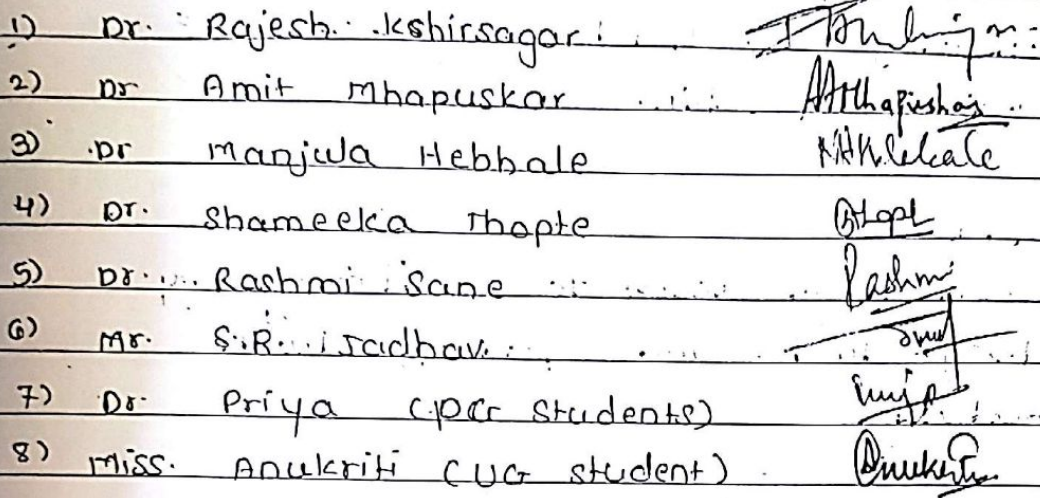 1) Dr. Rajesh. Kshirsagar.
2) Dr Amit Mhapuskar
3) Dr Manjula Hebbale
4) Dr. Shameeka Thopte
5) Dr. Rashmi Sane Rashmi
6) Mr. S.R. Jadhav.
7) Dr. Priya (PG Students)
8) Miss. Anukriti (UG student) Anukriti